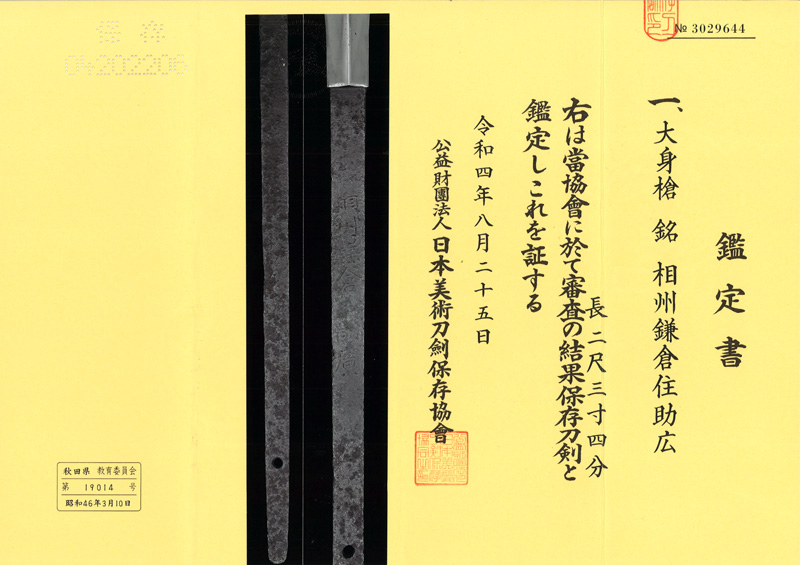 № 3029644
鑑定書
一、大身槍 銘 相州鎌倉住助広
長 二尺三寸四分
右は當協會に於て審査の結果保存刀剣と
鑑定しこれを証する
令和四年八月二十五日
公益財團法人日本美術刀劍保存協會
保存
04202206
秋田県 教育委員会
第 19014 号
昭和46年3月10日